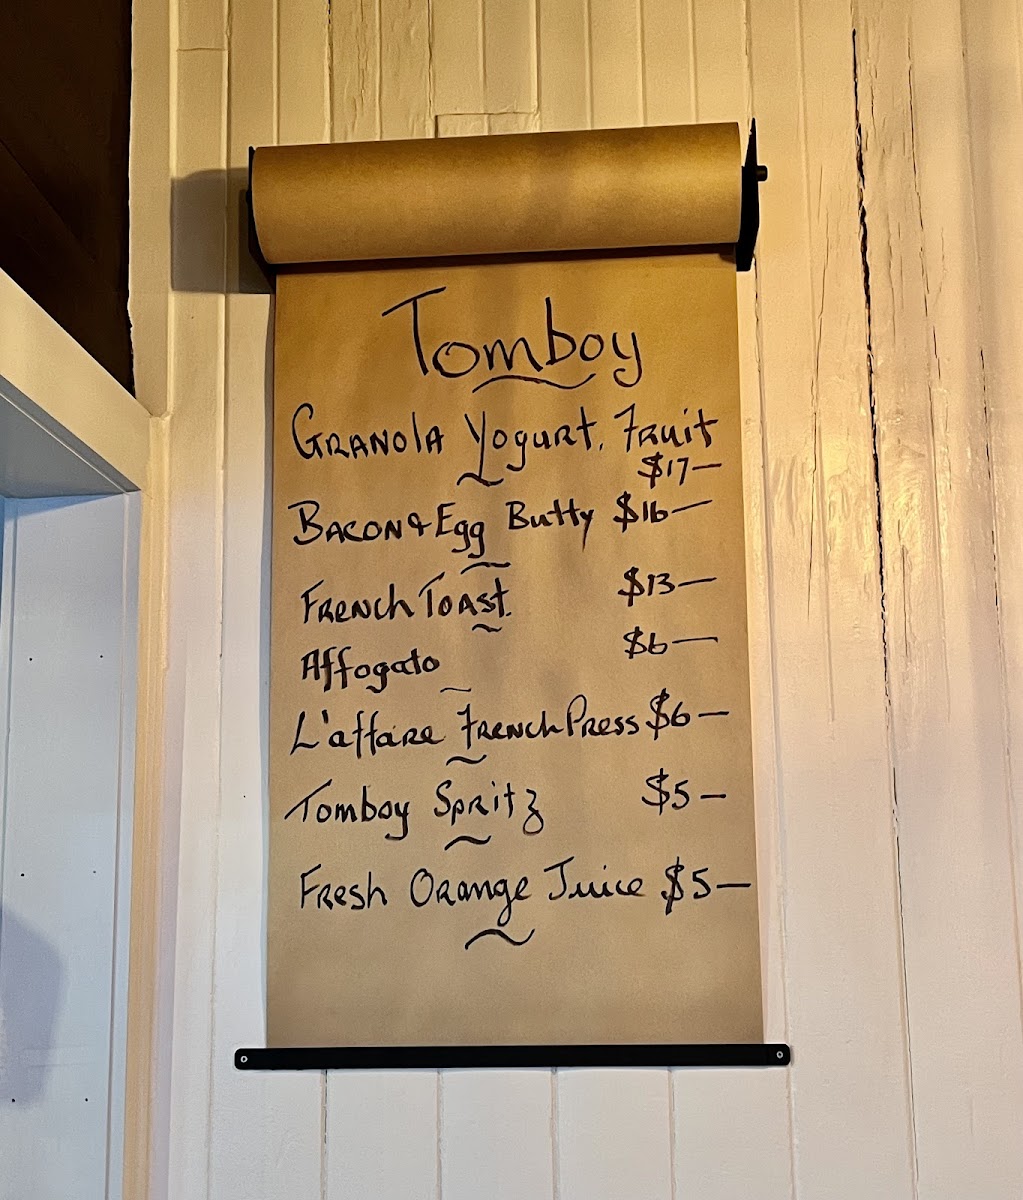 Tomboy
Granola Yogurt. Fruit
$17—
Bacon & Egg Butty $16—
French Toast. $13—
Affogato $6—
L'affare French Press $6—
Tomboy Spritz $5—
Fresh Orange Juice $5—